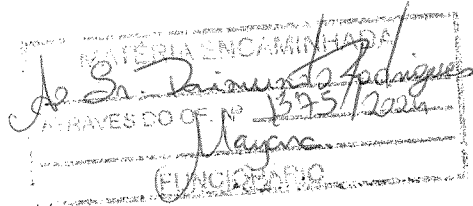 MATÉRIA ENCAMINHADA
Ao Sr. Raimundo Rodrigues
ATRAVES DO OF. Nº 1375/2024
Mayara
FUNCIONÁRIO